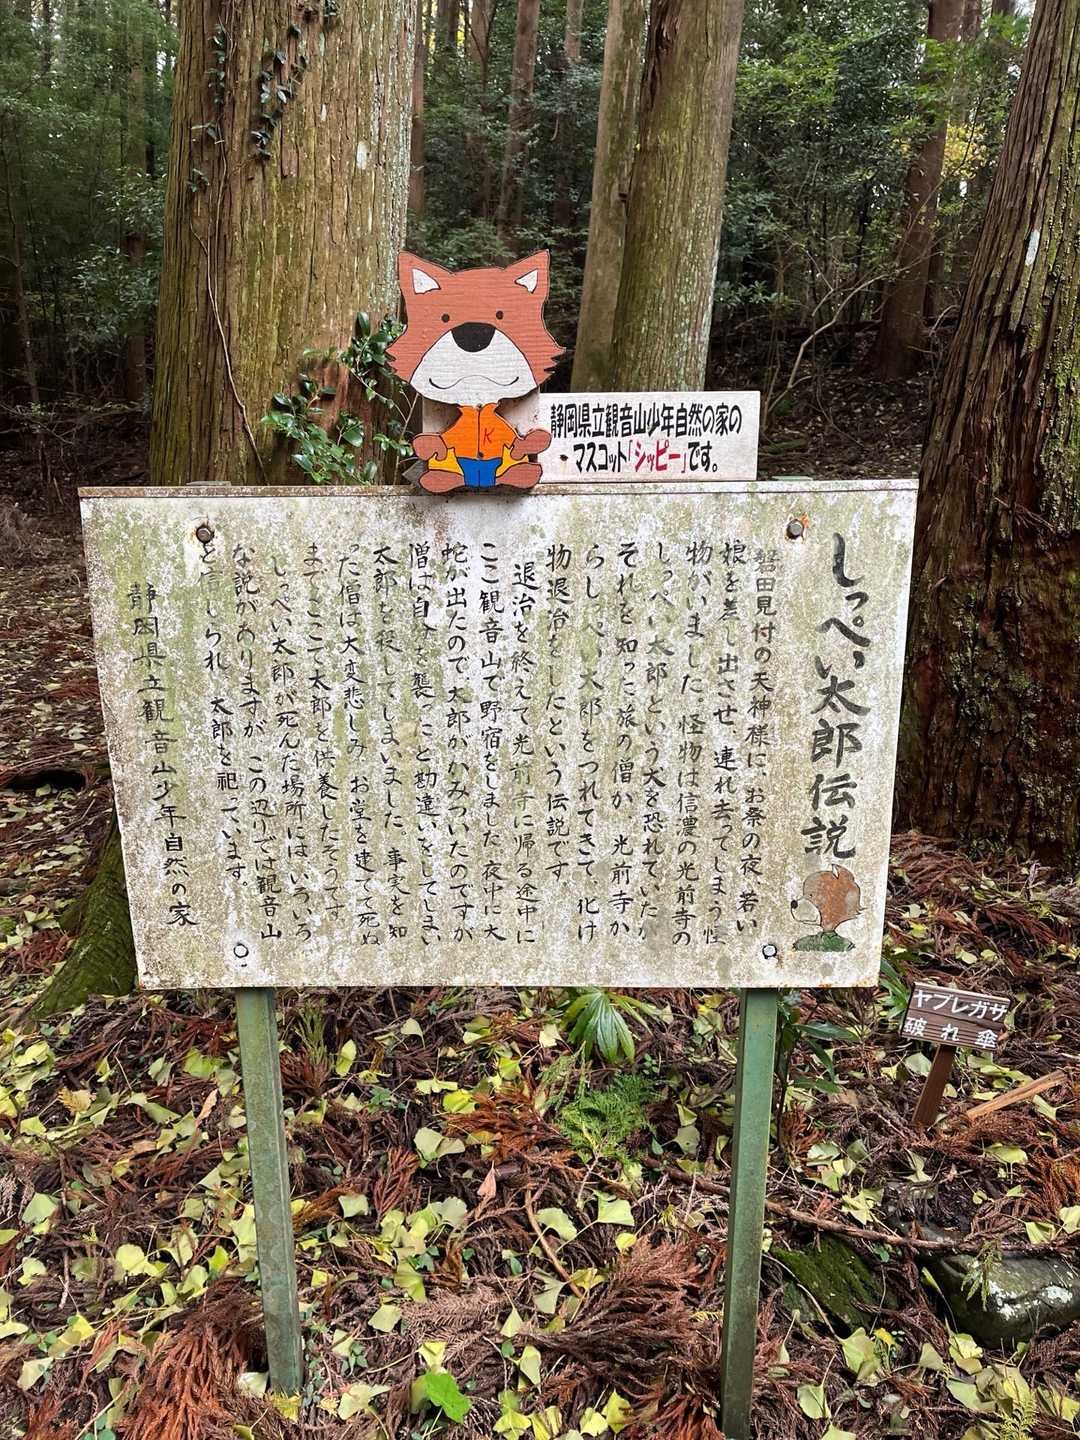 静岡県立観音山少年自然の家の
マスコット「シッピー」です。
しっぺい太郎伝説
磐田見付の天神様に、お祭の夜、若い
娘を差し出させ、連れ去ってしまう怪
物がいました。怪物は信濃の光前寺の
しっぺい太郎という犬を恐れていたが
それを知った旅の僧が、光前寺か
らしっぺい太郎をつれてきて、化け
物退治をしたという伝説です。
退治を終えて光前寺に帰る途中に
ここ観音山で野宿をしました夜中に大
蛇が出たので、太郎がかみついたのですが
僧は自分を襲ったと勘違いをしてしまい
太郎を殺してしまいました。事実を知
った僧は大変悲しみ お堂を建て死ぬ
までここで太郎を供養したそうです
しっぺい太郎が死んだ場所にはいろいろ
な説がありますが この辺りでは観音山
と信じられ、太郎を祀っています。
静岡県立観音山少年自然の家
ヤブレガサ
破れ傘